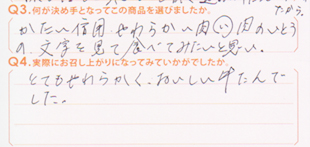 たから。
Q3.何が決め手となってこの商品を選びましたか。
かたい信用 やわらかい肉(い)肉のいとう
の、文字を見て食べてみたいと思い。
Q4.実際にお召し上がりになってみていかがでしたか。
とてもやわらかく、おいしい牛たんで
した。